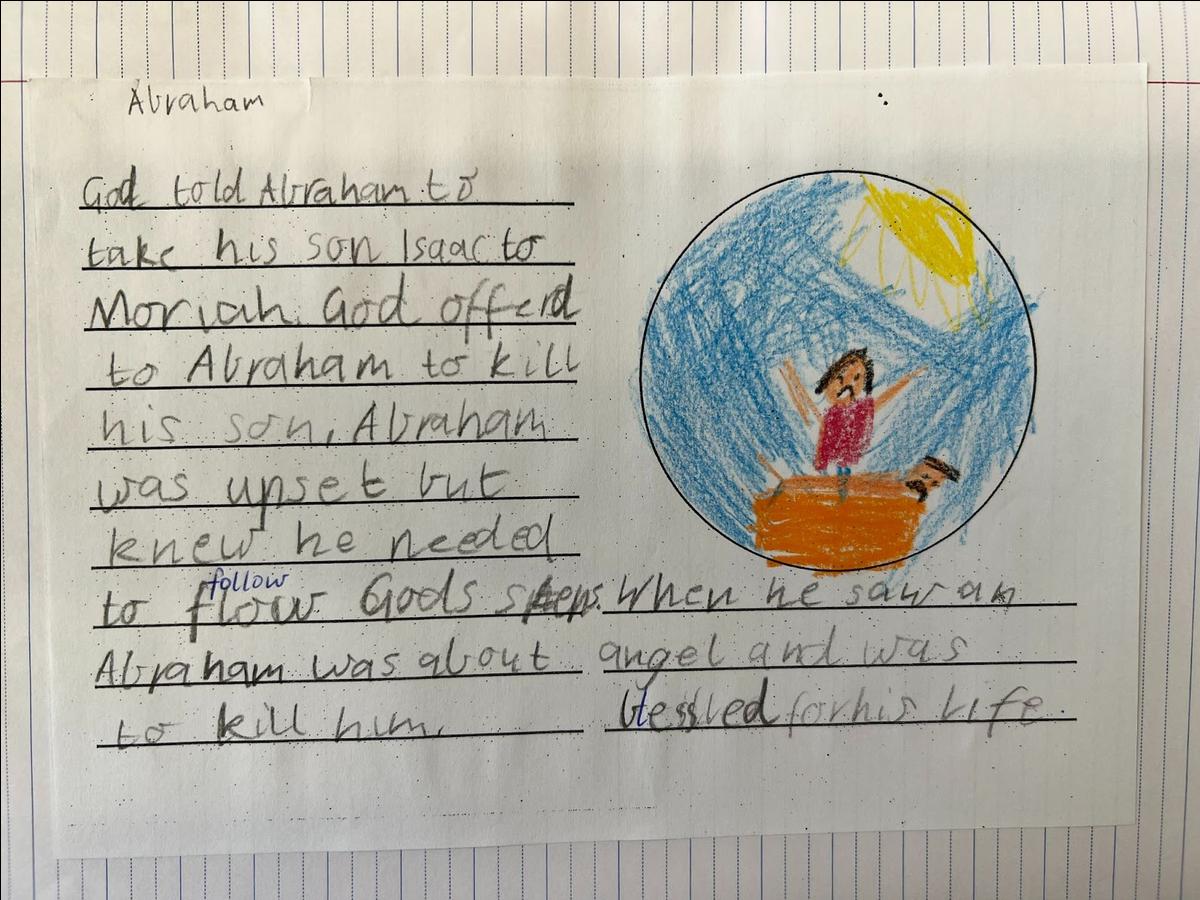 Abraham
God told Abraham to
take his son Isaac to
Moriah. God offerd
to Abraham to kill
his son. Abraham
was upset but
knew he needed
follow
to flow Gods steps.
Abraham was about
to kill him.
When he saw an
angel and was
blessed for his Life